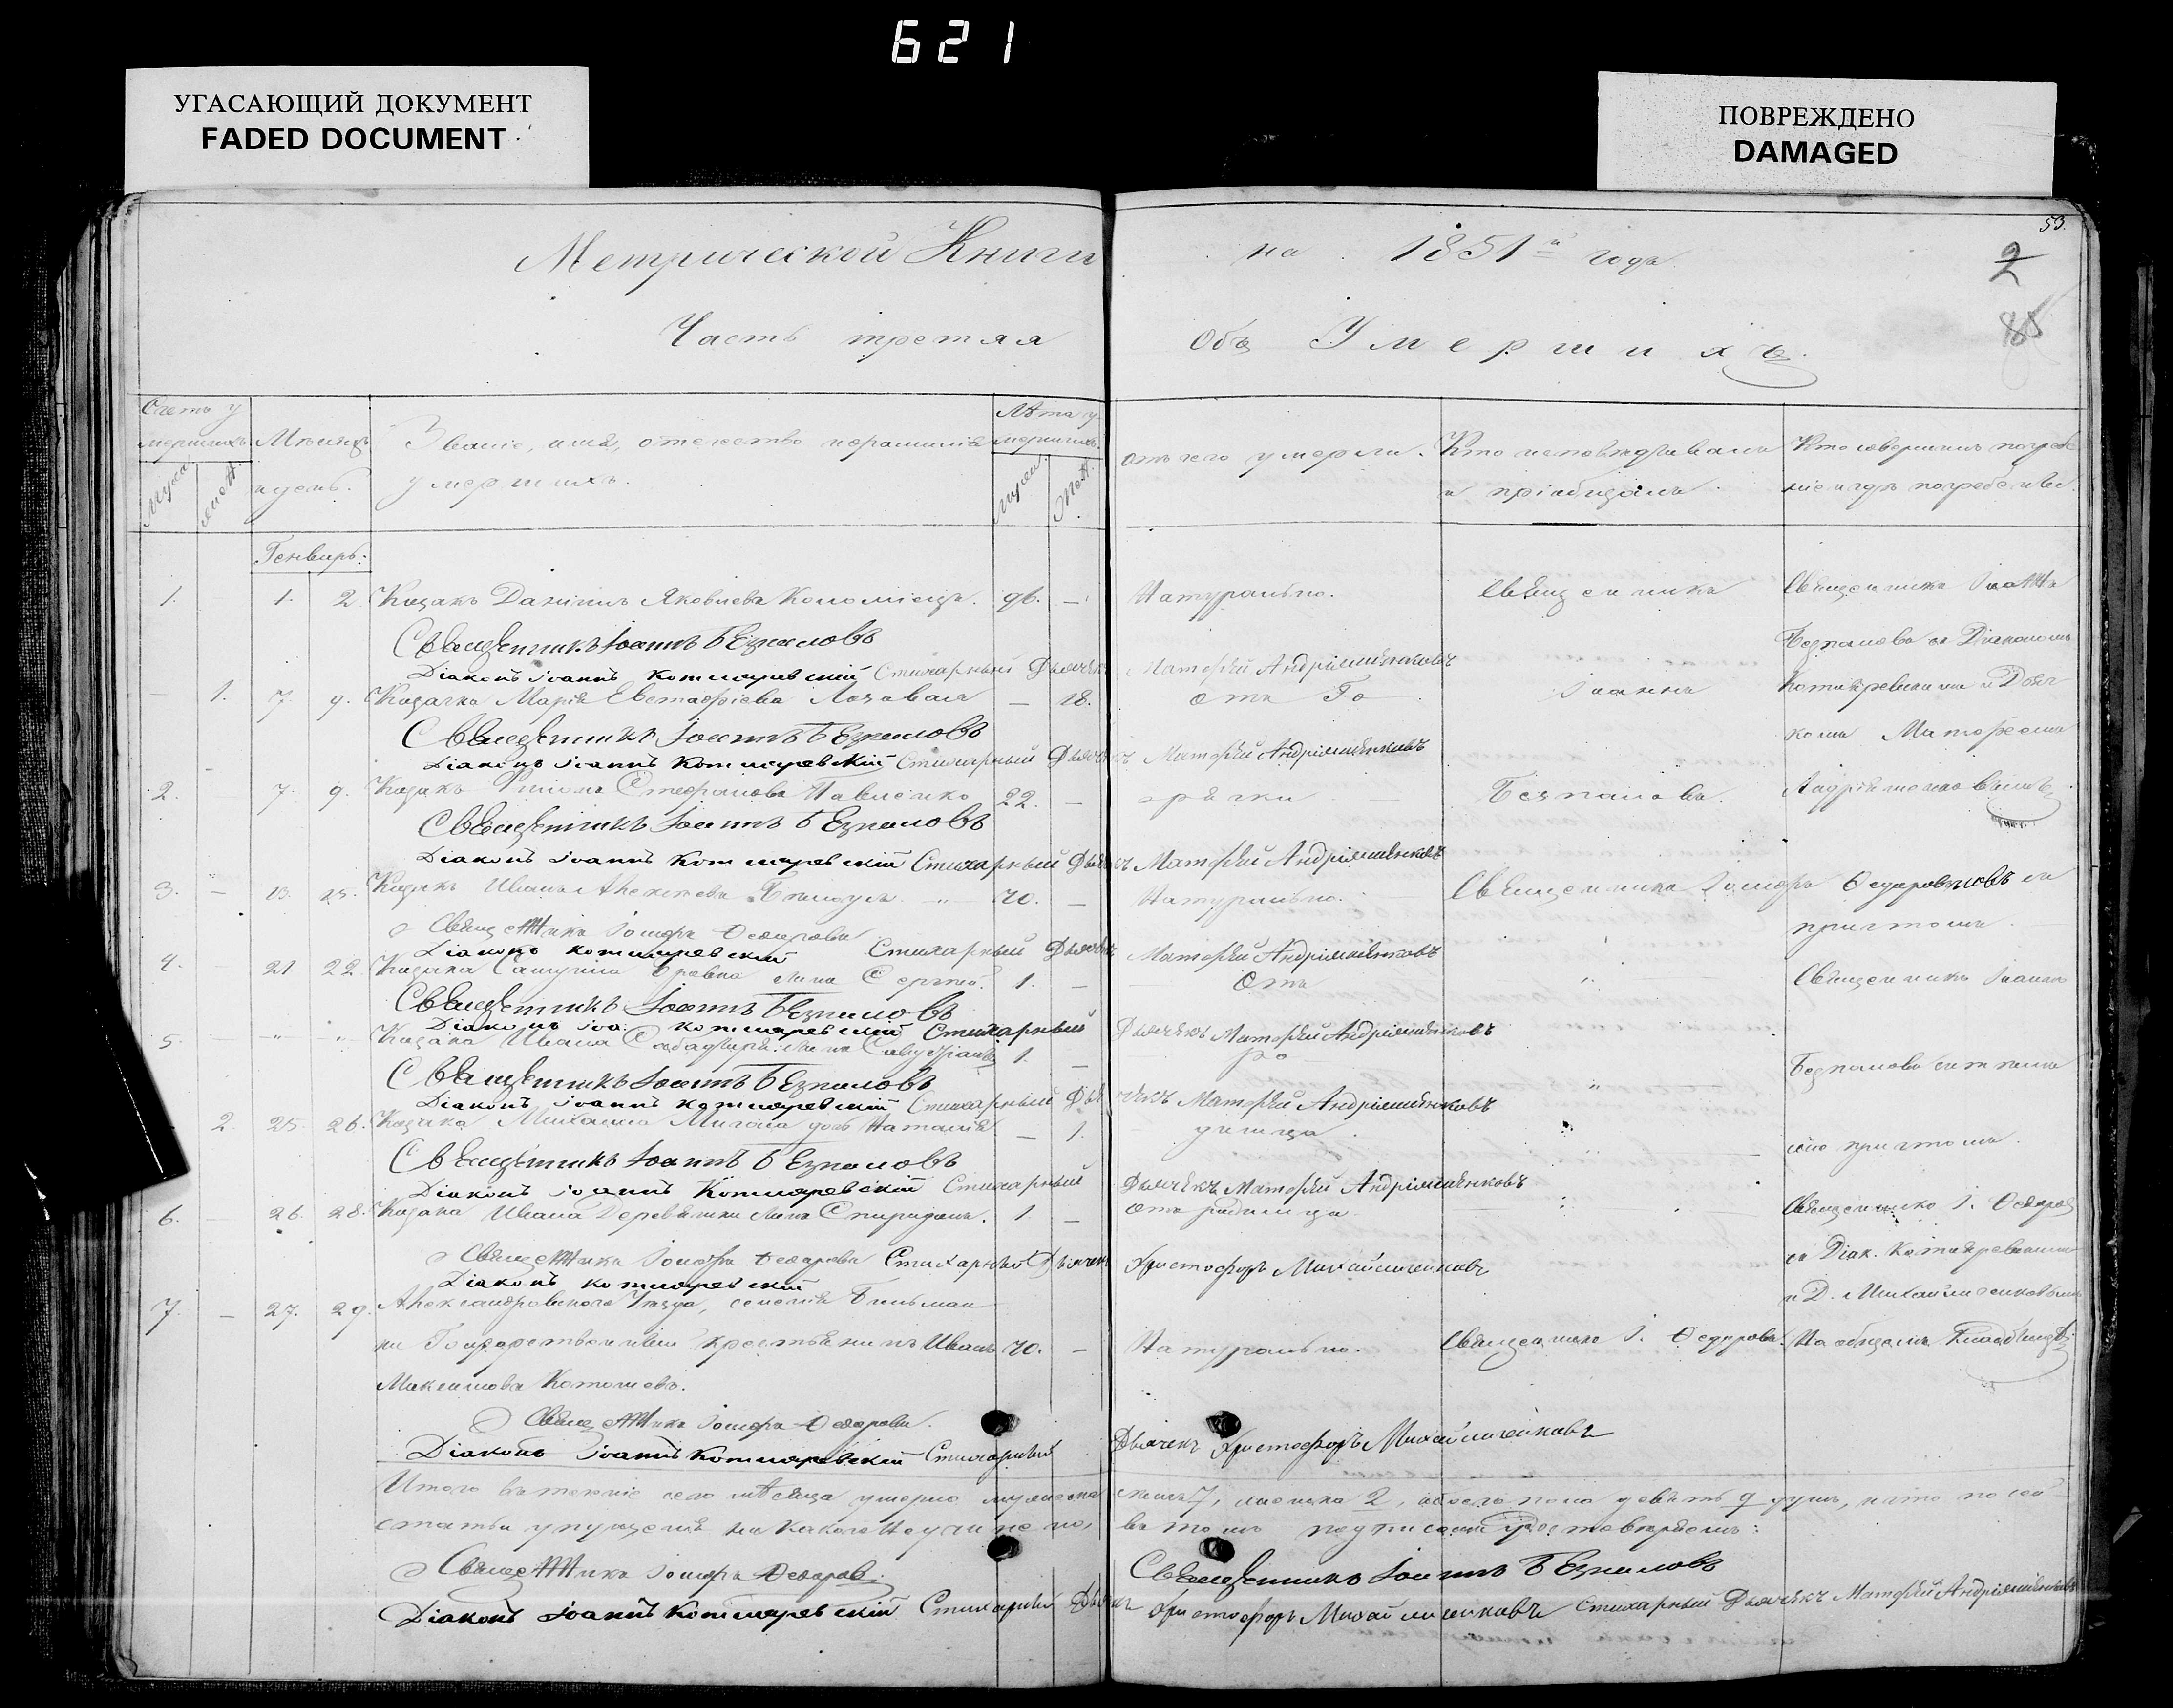 621
УГАСАЮЩИЙ ДОКУМЕНТ
FADED DOCUMENT
ПОВРЕЖДЕНО
DAMAGED
53.
2
Метрической Книги на 1851й года
Часть третяя Объ Умершихъ.
Счетъ умершихъ
Мужеска
женск.
Мѣсяцъ и день.
Званіе, имя, отчество и фамилія умершихъ.
Лѣта умершихъ.
Мужеск.
Женск.
отъ чего умерли.
Кто исповѣдывалъ и пріобщалъ.
Кто совершилъ погребеніе и гдѣ погребены.
Генварь.
1. 1. 2. Козакъ Даніилъ Яковлевъ Коломіецъ. 96. — Натурально. Священникъ Священникъ Іоаннъ
Священникъ Іоаннъ Безпаловъ Безпаловъ съ Діакономъ
Діаконъ Іоаннъ Котляревскій Стихарный Дьячекъ Матѳѣй Андріяшенковъ
— 1. 7. 9. Козачка Марія Евстафіева Лозовая — 18. отъ Го Іоаннъ Котляревскимъ и Дьяч
Священникъ Іоаннъ Безпаловъ комъ Матѳѣемъ
Діаконъ Іоаннъ Котляревскій Стихарный Дьячекъ Матѳѣй Андріяшенковъ
2. 7. 9. Козакъ Стефановъ Павленко 22. — рячки Безпаловъ.
Священникъ Іоаннъ Безпаловъ
Діаконъ Іоаннъ Котляревскій Стихарный Дьячекъ Матѳѣй Андріяшенковъ
3. — 13. 15. Козакъ Иванъ Алексѣевъ 70. — Натурально. Священникъ Іосифъ Ѳедоровъ съ
Священникъ Іосифъ Ѳедоровъ причтомъ.
Діаконъ Котляревскій Стихарный Дьячекъ Матѳѣй Андріяшенковъ
4. 21 22. Козака сынъ Сергѣй. 1. — Отъ Священникъ Іоаннъ
Священникъ Іоаннъ Безпаловъ
Діаконъ Іоа. Котляревскій Стихарный Дьячекъ Матѳѣй Андріяшенковъ
5. — " " Козака Ивана сынъ 1. — ро Безпаловъ
Священникъ Іоаннъ Безпаловъ
Діаконъ Іоаннъ Котляревскій Стихарный Дьячекъ Матѳѣй Андріяшенковъ
2. 25. 26. Козака Михаила дочь Наталія — 1. димца причтомъ.
Священникъ Іоаннъ Безпаловъ
Діаконъ Іоаннъ Котляревскій Стихарный Дьячекъ Матѳѣй Андріяшенковъ
6. 26. 28. Козака Ивана Деревянки сынъ Спиридонъ. 1. — отъ родимца. Священникъ І. Ѳедоровъ
Священникъ Іосифъ Ѳедоровъ Стихарный Дьячекъ Христофоръ Михайличенковъ съ Діак. Котляревскимъ
Діаконъ Котляревскій и Д. Михайличенковымъ
7. — 27. 29. Александровского Уѣзда, селенія Бильман
ки Государственный крестьянинъ Иванъ 70. — Натурально. Священникъ І. Ѳедоровъ. На общемъ Кладбищѣ
Максимовъ
Священникъ Іосифъ Ѳедоровъ.
Діаконъ Іоаннъ Котляревскій Стихарный Дьячекъ Христофоръ Михайличенковъ
Итого въ теченіе сего мѣсяца умерло мужеска 7, женска 2, обоего пола девять 9 душъ, и что по сей
статьи упущенія ни какого не учинено, въ томъ подписомъ удостовѣряемъ:
Священникъ Іосифъ Ѳедоровъ. Священникъ Іоаннъ Безпаловъ
Діаконъ Іоаннъ Котляревскій Стихарный Дьячекъ Христофоръ Михайличенковъ Стихарный Дьячекъ Матѳѣй Андріяшенковъ